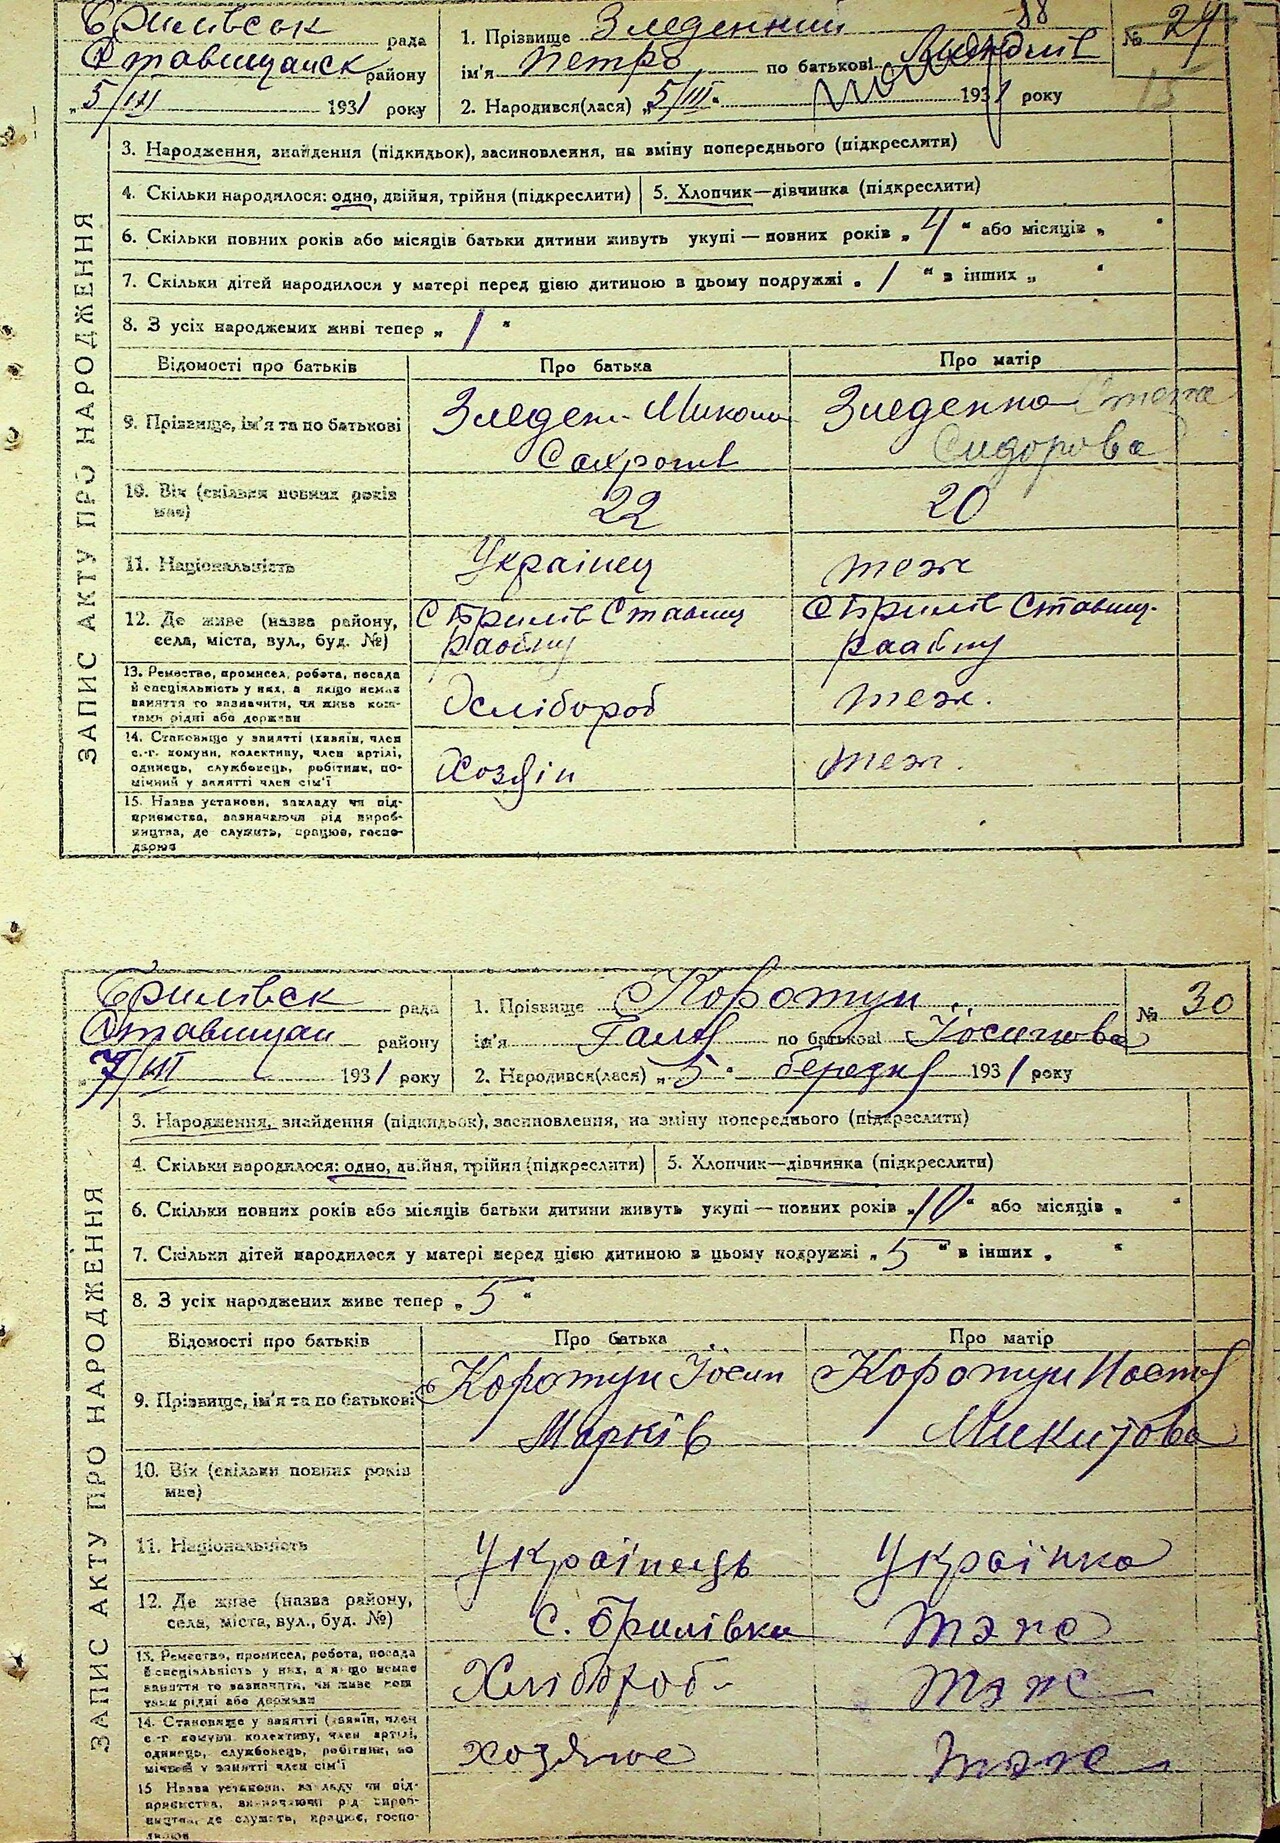 88
Брилівськ рада
Ставищанск району
„5/III 1931 року
1. Прізвище Зледенний
ім'я Петро по батькові
2. Народився(лася) „5/III“ 1931 року
№ 29
15
ЗАПИС АКТУ ПРО НАРОДЖЕННЯ
3. Народження, знайдення (підкидьок), засиновлення, на зміну попереднього (підкреслити)
4. Скільки народилося: одно, двійня, трійня (підкреслити)
5. Хлопчик—дівчинка (підкреслити)
6. Скільки повних років або місяців батьки дитини живуть укупі — повних років „ 4 “ або місяців „ “
7. Скільки дітей народилося у матері перед цією дитиною в цьому подружжі „ 1 “ в інших „ “
8. З усіх народжених живі тепер „ 1 “
Відомості про батьків Про батька Про матір
9. Прізвище, ім'я та по батькові
Зледен Микола
Зледенна
Сидорова
10. Вік (скільки повних років має) 22 20
11. Національність Українец теж
12. Де живе (назва району, села, міста, вул., буд. №)
С Брилів Ставищ
району
С Брилів Ставищ.
раабну
13. Ремество, промисел, робота, посада
й спеціяльність у них, а якщо немає
заняття то зазначити, чи живе кош-
тами рідні або держави
Хлібороб теж.
14. Становище у занятті (хазяїн, член
с.-г. комуни, колективу, член артілі,
одинець, службовець, робітник, по-
мічний у занятті член сім'ї
Хозяін теж.
15. Назва установи, закладу чи під-
приємства, зазначаючи рід вироб-
ництва, де служить, працює, госпо-
дарює
Брилівск рада
Ставищан району
7/III 1931 року
1. Прізвище Коротун
ім'я Галя по батькові Йосипова
2. Народився(лася) „ 5 “ березня 1931 року
№ 30
ЗАПИС АКТУ ПРО НАРОДЖЕННЯ
3. Народження, знайдення (підкидьок), засиновлення, на зміну попереднього (підкреслити)
4. Скільки народилося: одно, двійня, трійня (підкреслити)
5. Хлопчик—дівчинка (підкреслити)
6. Скільки повних років або місяців батьки дитини живуть укупі — повних років „10“ або місяців „ “
7. Скільки дітей народилося у матері перед цією дитиною в цьому подружжі „ 5 “ в інших „ “
8. З усіх народжених живе тепер „ 5 “
Відомості про батьків Про батька Про матір
9. Прізвище, ім'я та по батькові
Коротун Йосип
Марків
Коротун Настя
Микитова
10. Вік (скільки повних років має)
11. Національність Українець Українка
12. Де живе (назва району, села, міста, вул., буд. №)
С. Брилівка тэж
13. Ремество, промисел, робота, посада
й спеціяльність у них, а якщо немає
заняття то зазначити, чи живе кош
тами рідні або держави
Хлібороб тэж
14. Становище у занятті (хазяїн, член
с.-г комуни колективу, член артілі,
одинець, службовець, робітник, по
мічний у занятті член сім'ї
тэж
15 Назва установи, закладу чи під-
приємства, визначаючи рід вироб-
ництва, де служить, працює, госпо-
дарює